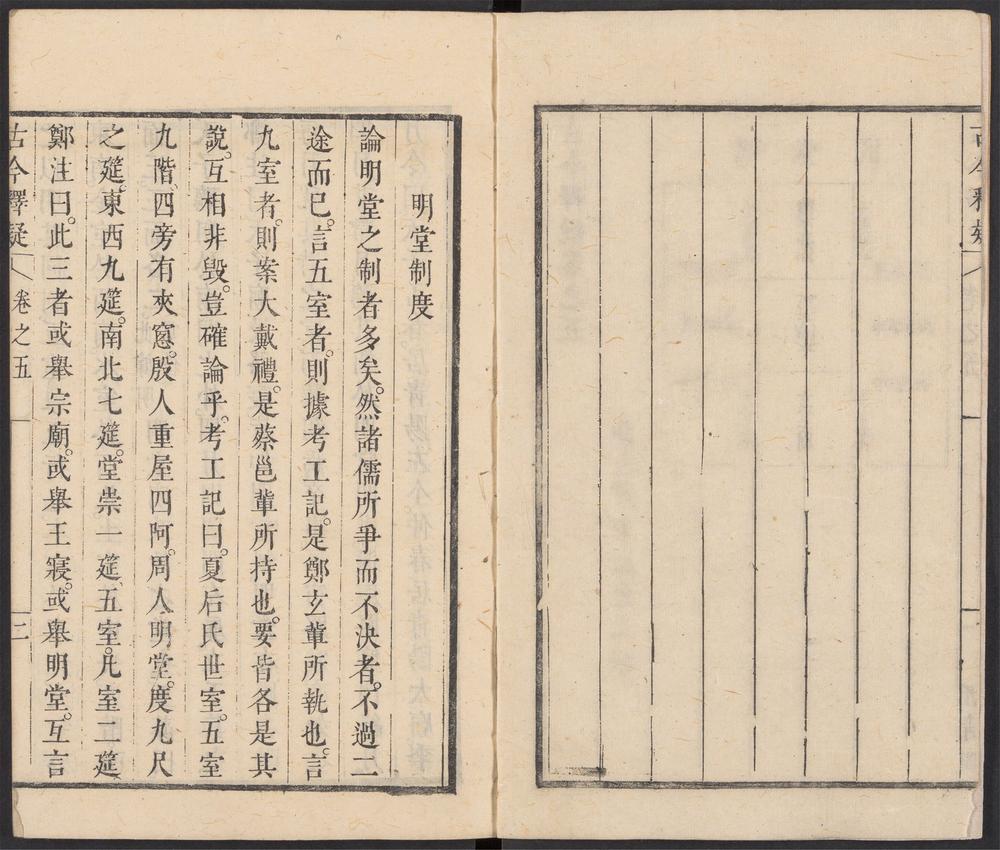 古今釋疑
明堂制度
論明堂之制者多矣。然諸儒所爭而不決者。不過二
途而已。言五室者。則據考工記。是鄭玄輩所執也。言
九室者。則葢大戴禮。是蔡邕輩所持也。要皆各是其
說。互相非毀。豈確論乎。考工記曰。夏后氏世室。五室
九階、四旁有夾窻。殷人重屋四阿。周人明堂。度九尺
之筵。東西九筵。南北七筵。堂崇一筵、五室。凡室二筵
鄭注曰。此三者或舉宗廟。或舉王寢。或舉明堂。互言
古今釋疑 卷之五 二